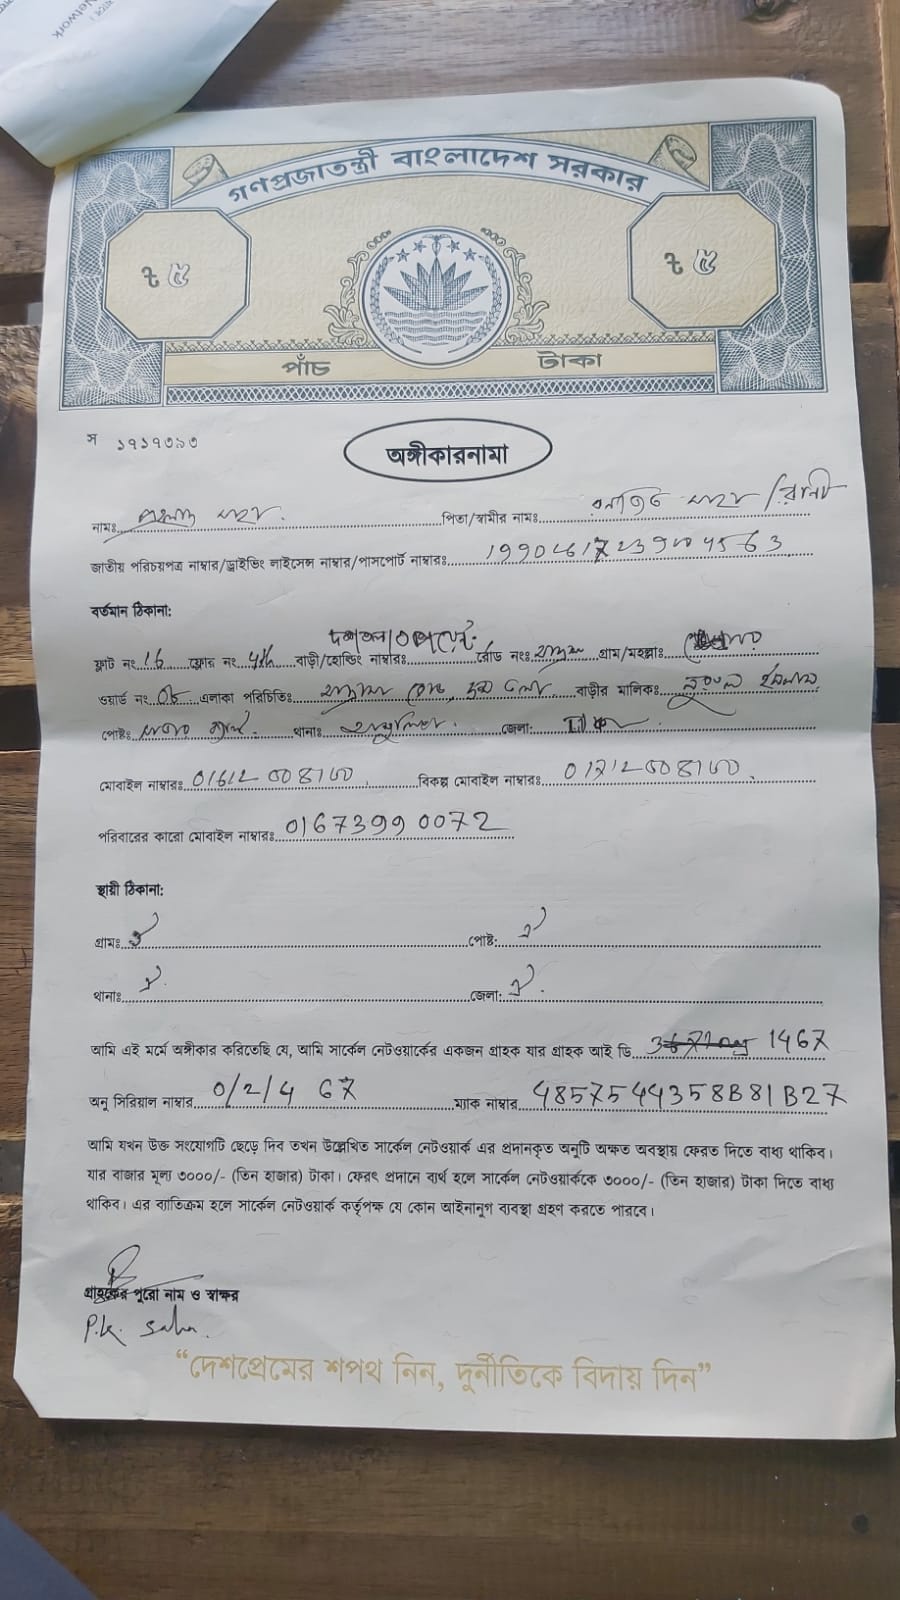 Network
গণপ্রজাতন্ত্রী বাংলাদেশ সরকার
৳ ৫ ৳ ৫
পাঁচ টাকা
স ১৭১৭৩৯৩
অঙ্গীকারনামা
নামঃ সাহা পিতা/স্বামীর নামঃ সাহা
জাতীয় পরিচয়পত্র নাম্বার/ড্রাইভিং লাইসেন্স নাম্বার/পাসপোর্ট নাম্বারঃ
বর্তমান ঠিকানা:
ফ্লাট নং 16 ফ্লোর নং 4th বাড়ী/হোল্ডিং নাম্বারঃ রোড নংঃ গ্রাম/মহল্লাঃ
ওয়ার্ড নং 05 এলাকা পরিচিতিঃ রোড, বাড়ীর মালিকঃ নুরুল ইসলাম
পোষ্টঃ থানাঃ জেলা: ঢাকা
মোবাইল নাম্বারঃ বিকল্প মোবাইল নাম্বারঃ
পরিবারের কারো মোবাইল নাম্বারঃ 01673990072
স্থায়ী ঠিকানা:
গ্রামঃ ঐ পোষ্ট: ঐ
থানাঃ ঐ জেলা: ঐ
আমি এই মর্মে অঙ্গীকার করিতেছি যে, আমি সার্কেল নেটওয়ার্কের একজন গ্রাহক যার গ্রাহক আই ডি 1467
অনু সিরিয়াল নাম্বার 0/2/4 67 ম্যাক নাম্বার 4857544358B81B27
আমি যখন উক্ত সংযোগটি ছেড়ে দিব তখন উল্লেখিত সার্কেল নেটওয়ার্ক এর প্রদানকৃত অনুটি অক্ষত অবস্থায় ফেরত দিতে বাধ্য থাকিব।
যার বাজার মূল্য ৩০০০/- (তিন হাজার) টাকা। ফেরৎ প্রদানে ব্যর্থ হলে সার্কেল নেটওয়ার্ককে ৩০০০/- (তিন হাজার) টাকা দিতে বাধ্য
থাকিব। এর ব্যতিক্রম হলে সার্কেল নেটওয়ার্ক কর্তৃপক্ষ যে কোন আইনানুগ ব্যবস্থা গ্রহণ করতে পারবে।
গ্রাহকের পুরো নাম ও স্বাক্ষর
P.K. Saha.
“দেশপ্রেমের শপথ নিন, দুর্নীতিকে বিদায় দিন”